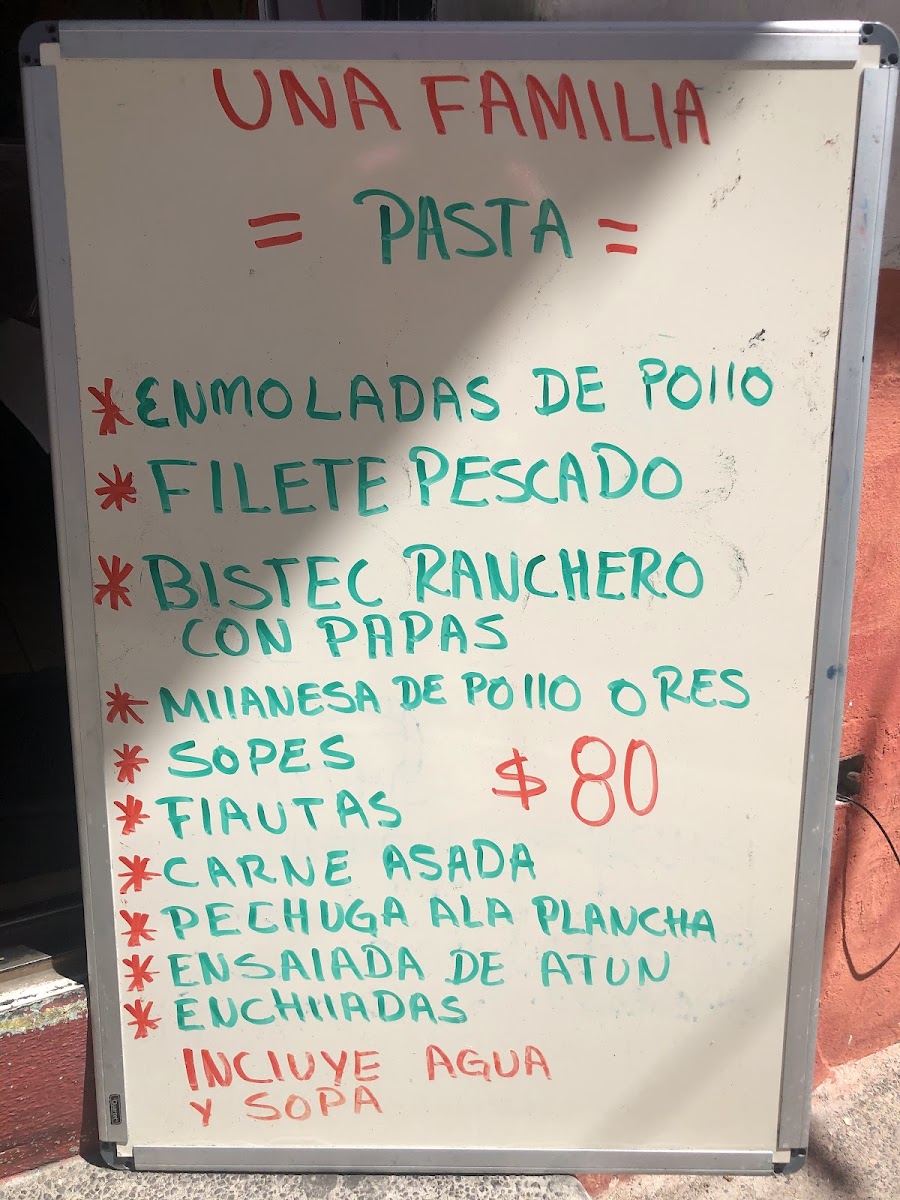 UNA FAMILIA
= PASTA =
* ENMOLADAS DE POllO
* FILETE PESCADO
* BISTEC RANCHERO
CON PAPAS
* MIlANESA DE POllO O RES
* SOPES
$80
* FlAUTAS
* CARNE ASADA
* PECHUGA ALA PLANCHA
* ENSAlADA DE ATUN
* ENCHIlADAS
INClUYE AGUA
Y SOPA